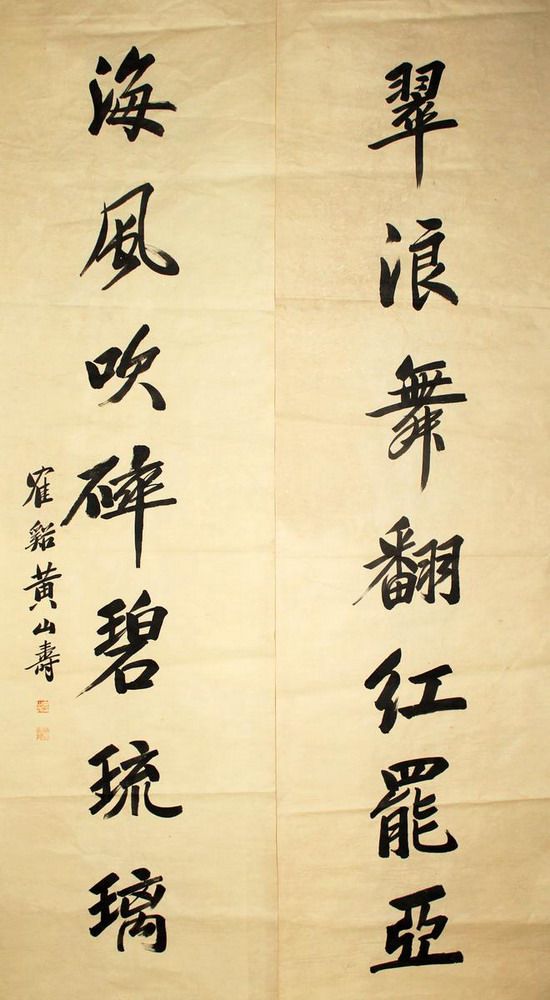 翠浪舞翻紅罷亞
海風吹碎碧琉璃
隺谿黃山壽